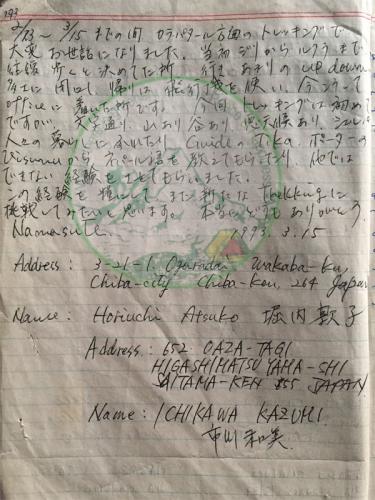 '93
2/13～3/15 までの間 カラパタール方面のトレッキングで
大変お世話になりました。当初ジリからルクラまで
往復歩くと決めてた所、行き あまりの up down
に閉口し、帰りは飛行機を使い、今こうして
officeに着いた所です。今回トレッキングは初めて
ですが、文字通り、山あり谷あり、悪天候あり、シェルパの
人々の暮らしにふれたり、GuideのTika、ポーターの
Bisnuから ネパール語を教えてもらったり、他では
できない経験をさせてもらいました。
この経験を糧にして、また新たな Trekkingに
挑戦してみたいと思います。本当にどうもありがとう。
Namasute. 1993. 3. 15
Address : 3-21-1, Oguradai, Wakaba-ku,
Chiba-city Chiba-Ken, 264 Japan
Name : Horiuchi Atsuko 堀内敦子
Address : 652 OAZA-TAGI
HIGASHIMATSUYAMA-SHI
SAITAMA-KEN 355 JAPAN
Name : ICHIKAWA KAZUMI
市川和美